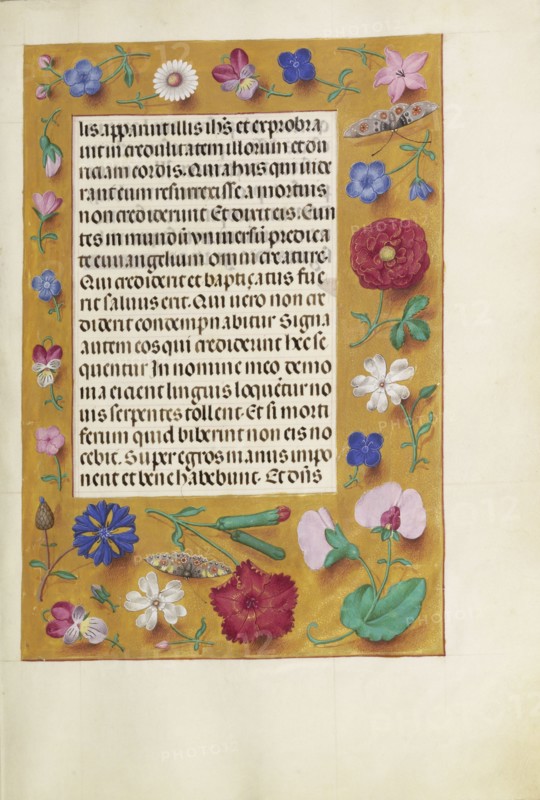 lis apparuit illis ihs et exprobra
uit incredulitatem illorum et du
riciam cordis. Quia hiis qui uide
rant eum resurrexisse a mortuis
non crediderunt Et dixit eis. Eun
tes in mundū vniuersū predica
te euuangelium omni creature.
Qui crediderit et baptiçatus fue
rit saluus erit. Qui uero non cre
diderit condempnabitur Signa
autem eos qui crediderunt hec se
quentur In nomine meo demo
nia eicient linguis loquētur no
uis serpentes tollent. Et si morti
ferum quid biberint non eis no
cebit. Super egros manus impo
nent et bene habebunt. Et dn̄s
PHOTO12